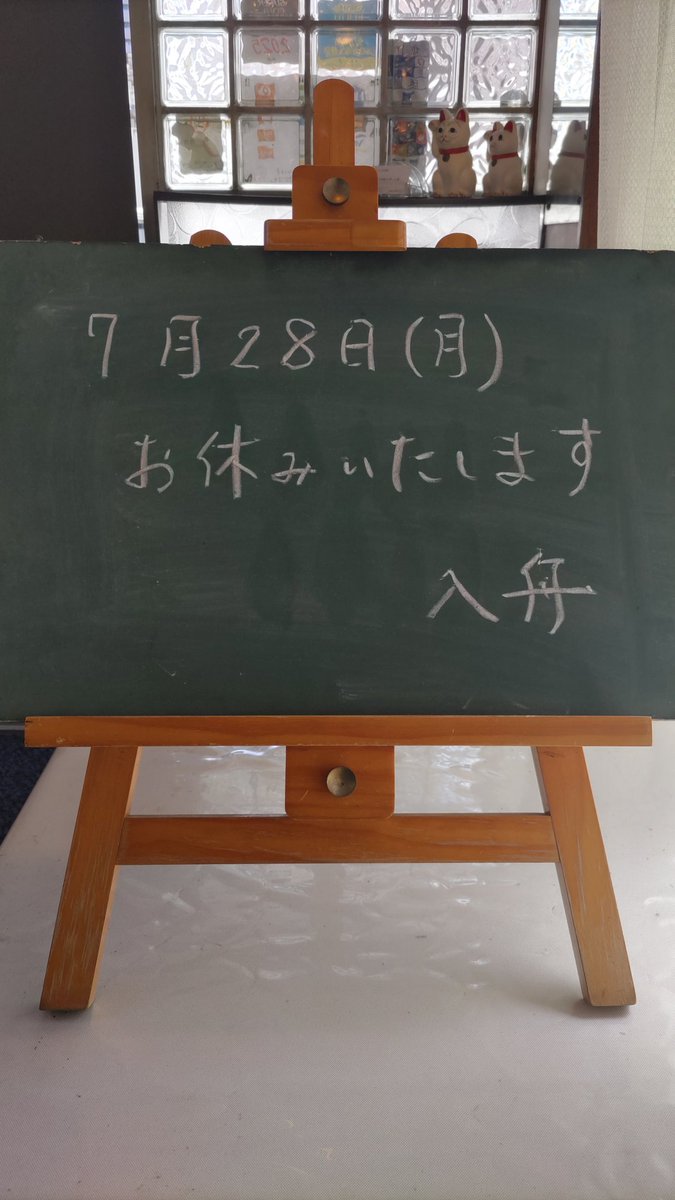 7月28日(月)
お休みいたします
入舟
2025